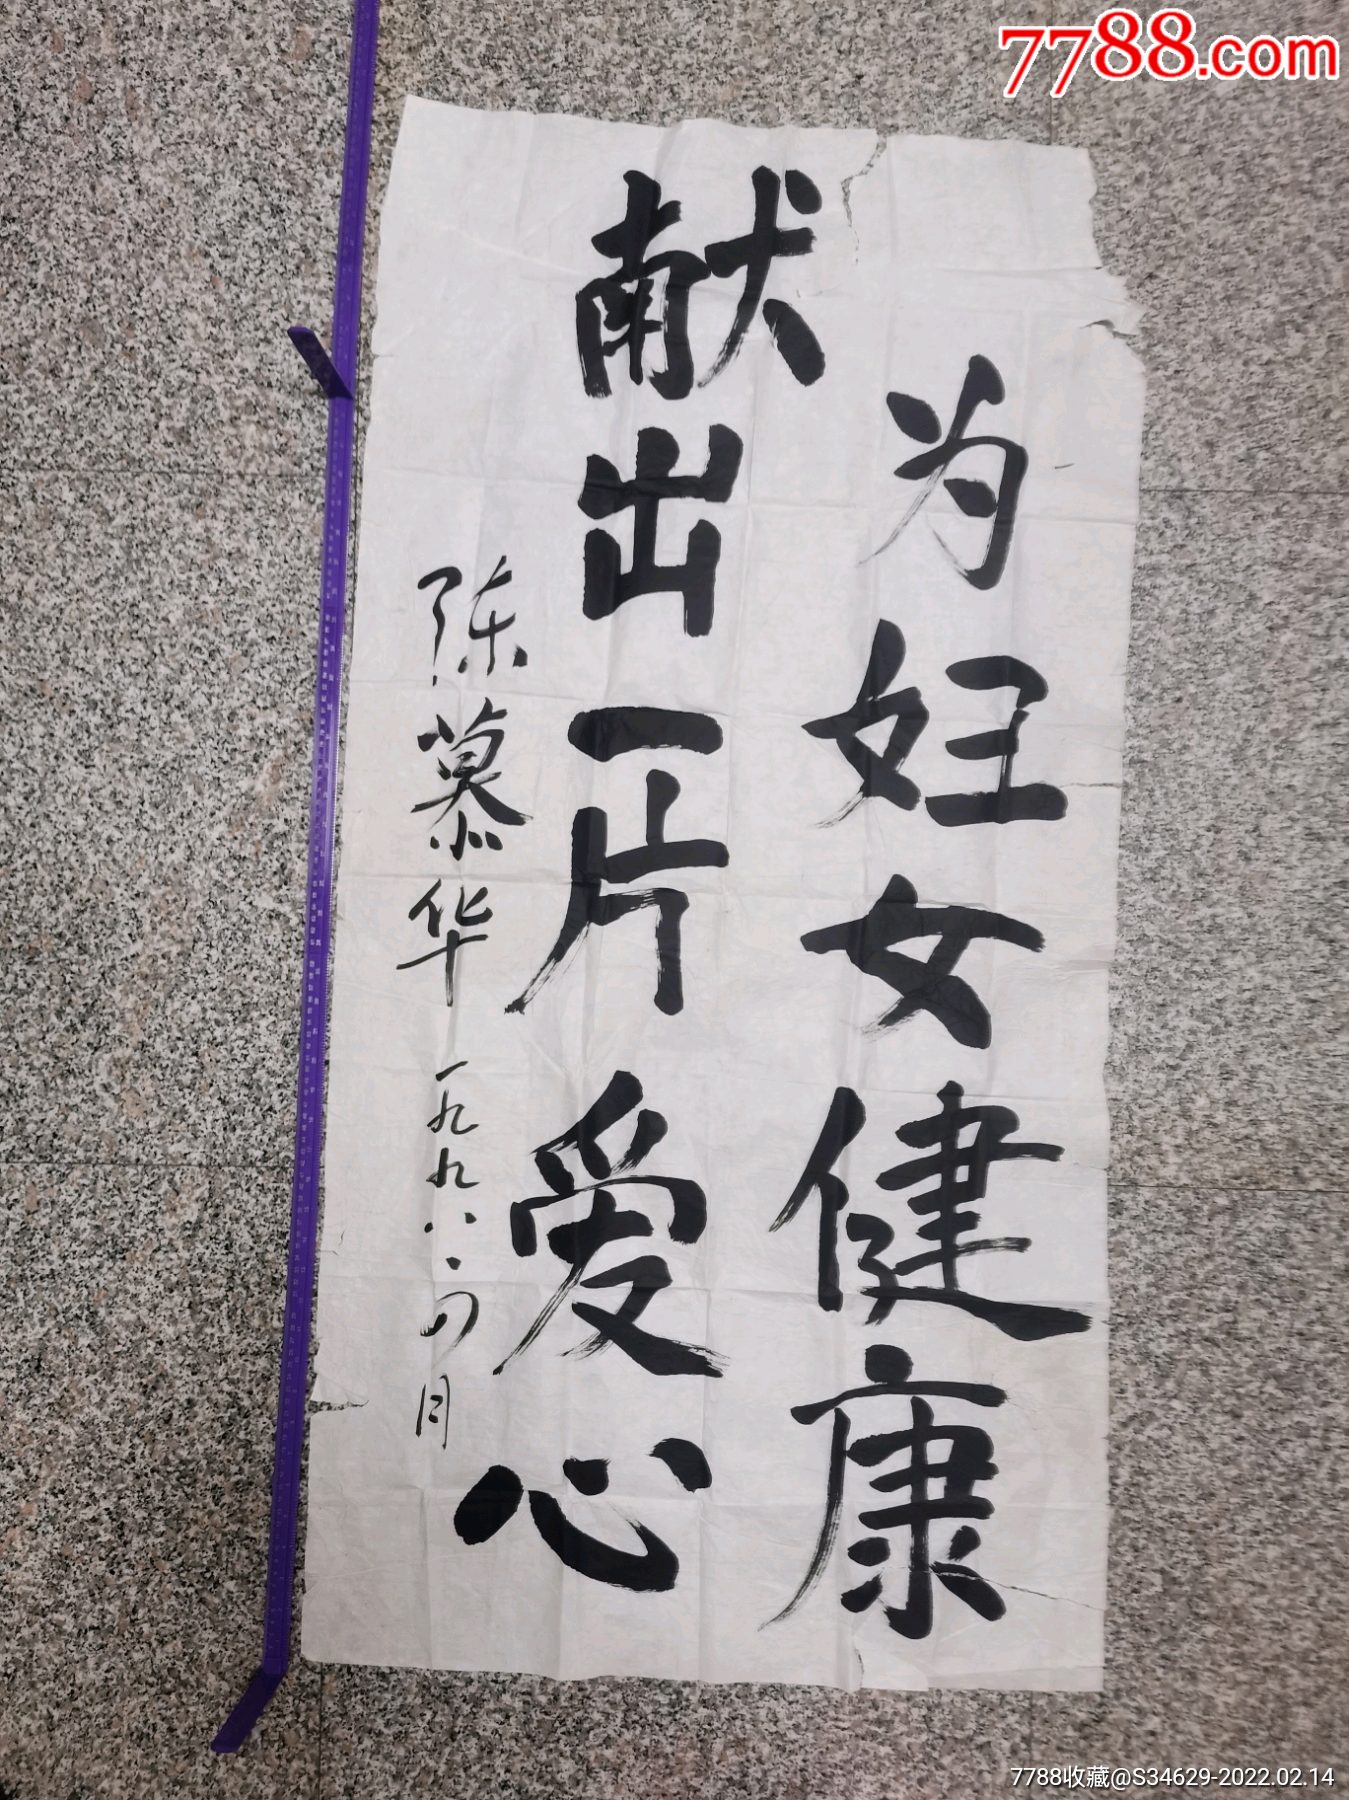 7788.com
为妇女健康
献出一片爱心
陈慕华 一九九八、四月
7788收藏@S34629-2022.02.14